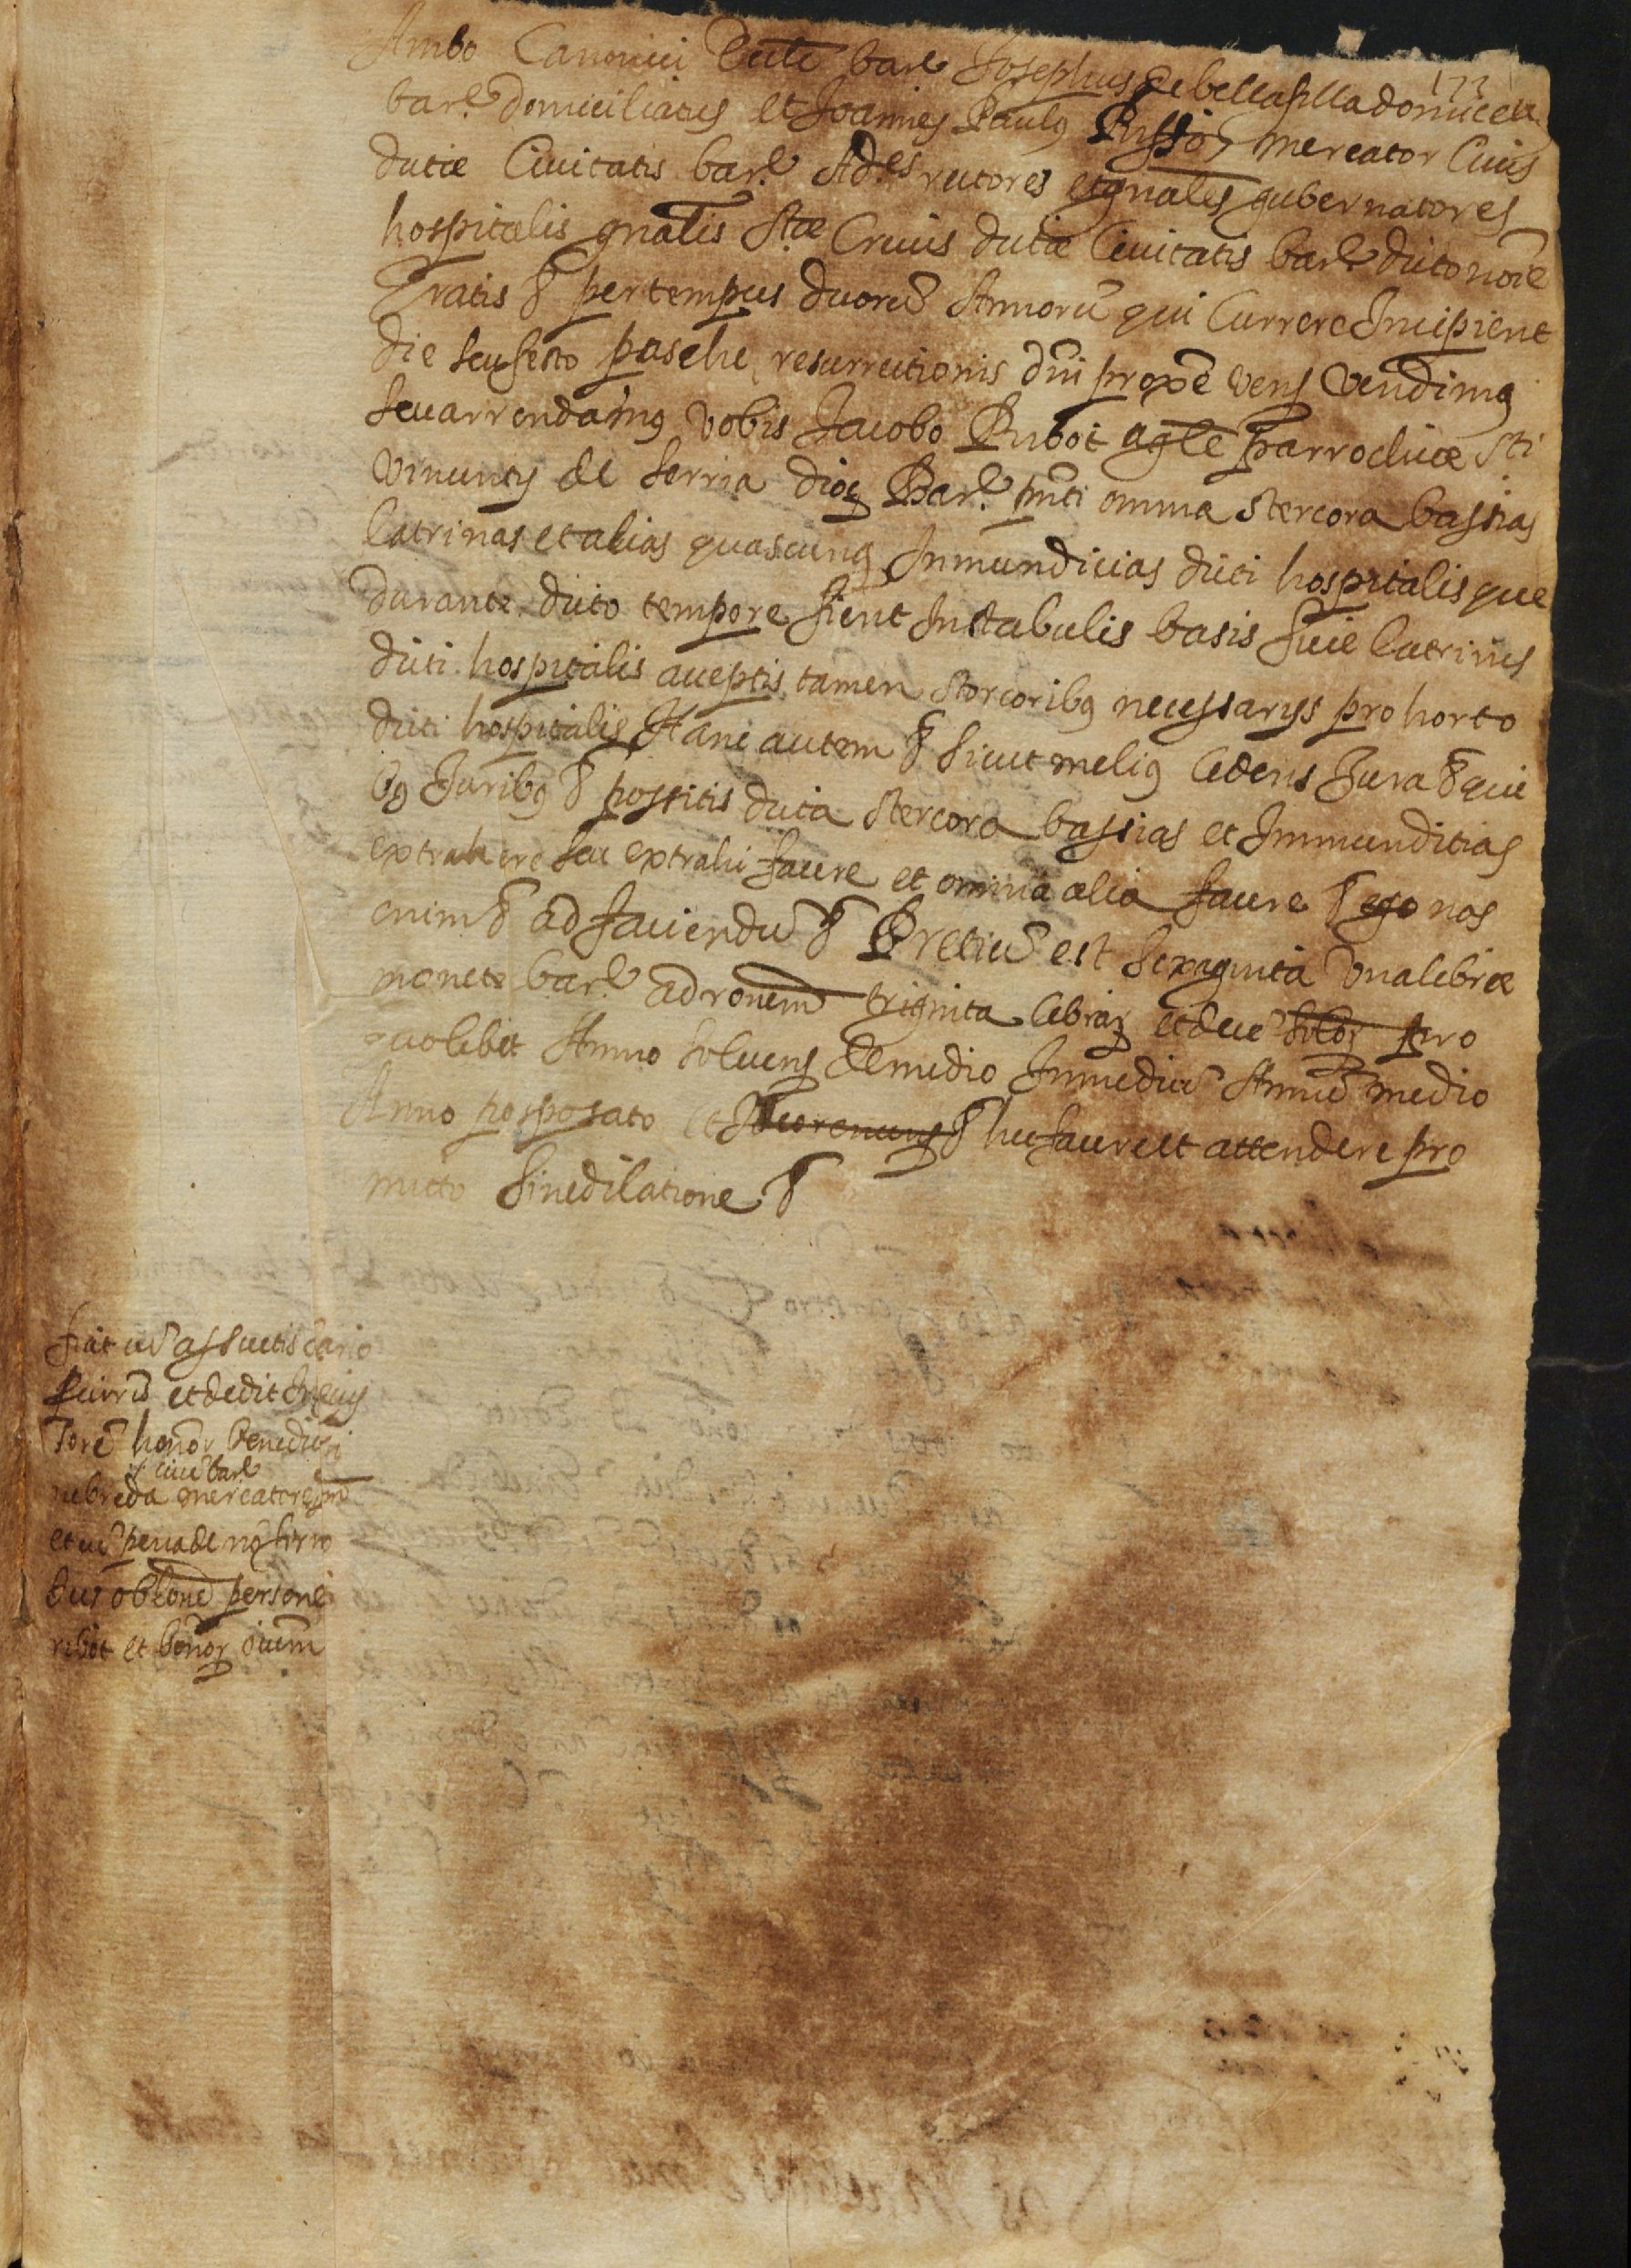 173
Ambo Canonici Eccłe bar.e Josephus de bellafilla domicell
bar.e domiciliatus et Joannes Paulus Russio, mercator Civis
dictæ Civitatis bar.e Ad.es rectores et gnales gubernatores
hospitalis gnalis Stæ Crucis dictæ Civitatis bar.e dicto noīe
Gratis & per tempus duorū Annorū qui Currere Incipient
die seu festo pasche resurrectionis dñi proxē vens vendimus
seu arrendamus vobis Jacobo Rubot agłe parrochiæ Sti
Vincentij de Serria dioc Bar.e pnti omnia stercora bassias
latrinas et alias quascunq Inmundicias dicti hospitalis que
durante dicto tempore fient In stabulis basis sive latrinis
dicti hospitalis acceptis tamen stercoribus necessarijs pro horto
dicti hospitalis Hanc autem & sicut melius Cedens Jura & qui
bus Juribus & possitis dicta stercora bassias et Immunditias
extrahere seu extrahi facere et omnia alia facere & ego nos
enim & ad faciendū & Pretiū est sexaginta una libræ
monete bar.e ad ronem triginta librar et decē solor pro
quolibet Anno solvens de medio In mediū Annū medio
Anno posposato et Ideo renuns & hec facere et attendere pro
mitto sine dilatione &
fiat cū assuetis
et dedit In
torē honor Benedicti
civē bar.e
nebreda mercatorē
et cū pena de
sus obłone persone
ribot et bonor